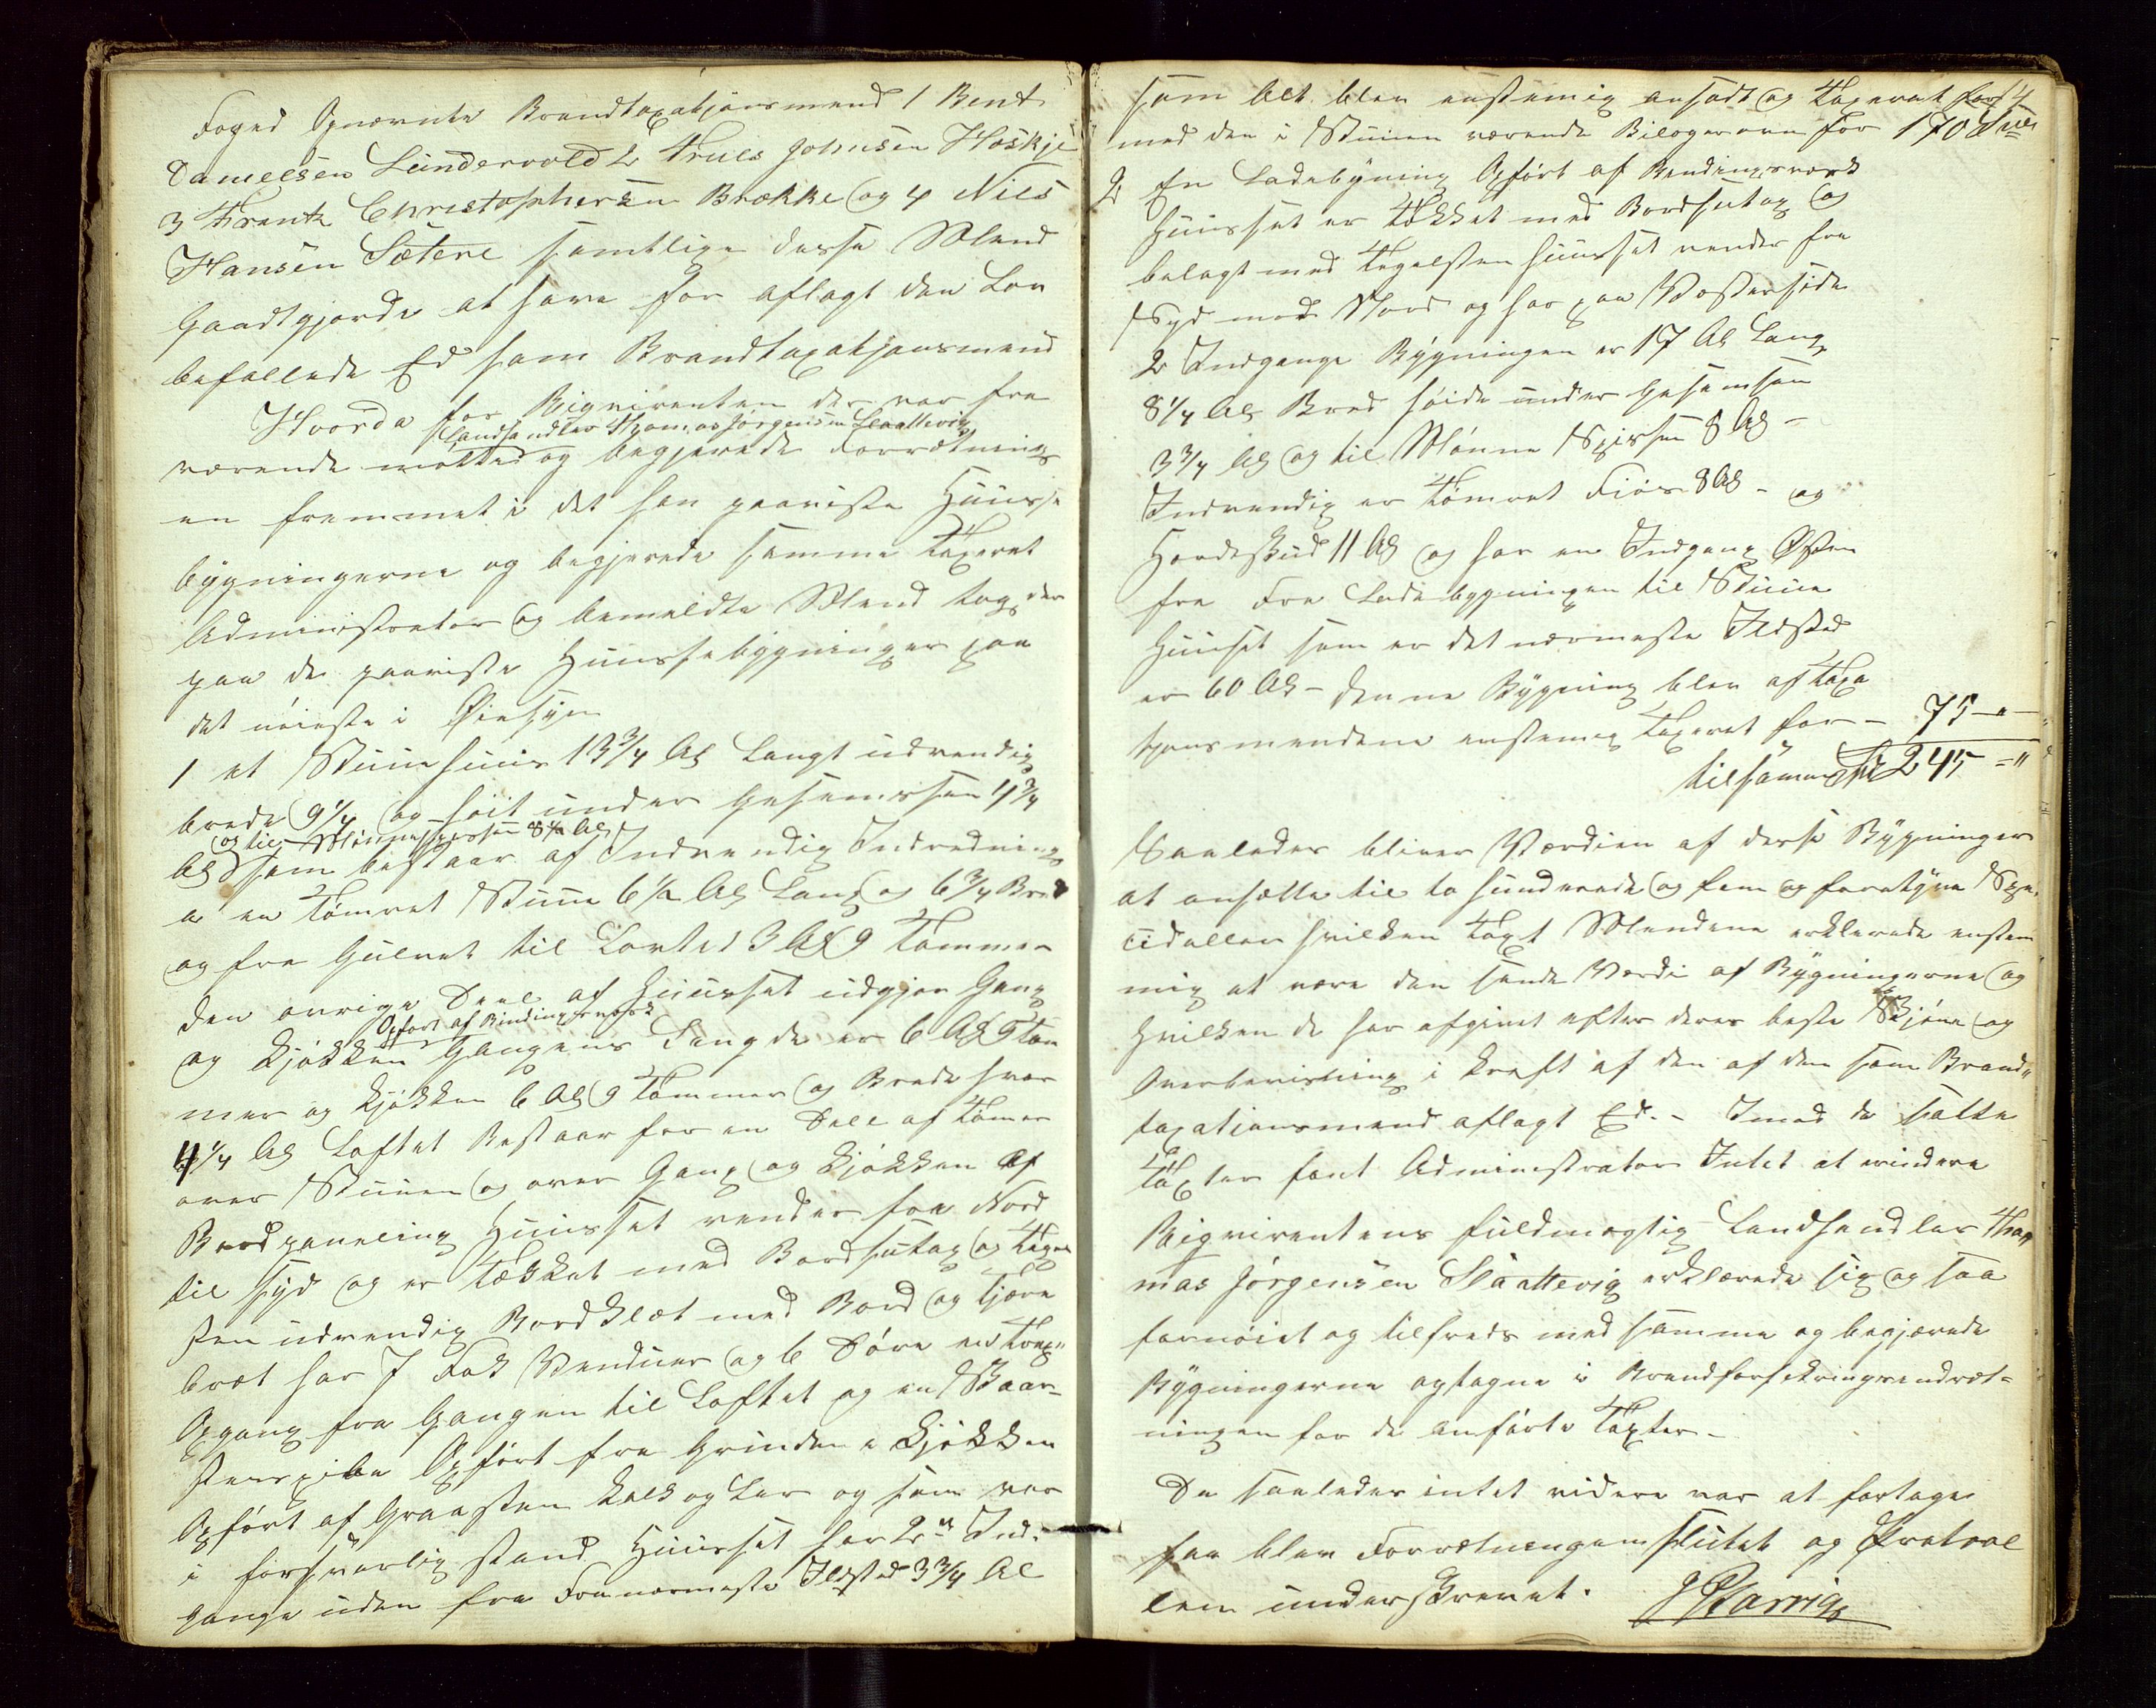 Foged Opnævnte Brandtaxatjonsmænd 1 Bent
Danielsen Lundervold 2 Truls Johnsen Haskje
3 Frantz Christophersen Brække og 4 Niels
Hansen Sætere samtlige disse Mænd
Gaadtgjorde at have før aflagt den Lov
befallede Ed som Brandtaxatjonsmænd
Hvorda for Reqvirenten der var fra
Landhandler Thomas Jørgensen Slaattevig
værende møtte og begjerede Forrætning
en fremmet i det han paaviste Huusse
bygningerne og begjerede samme Taxeret
Administrator og bemeldte Mænd tog der
paa de paaviste Huussebygninger paa
det nøieste i Øiesyn
1 et Stuuehuus 13 3/4 Al Langt udvendig
brede 9 1/4 og høit under Gesemssen 4 3/4
og til Mønnespissen 8 1/2 Al
Al som bestaar af Indvendig Indredning
a en Tømret Stuue 6 1/2 Al Lang og 6 3/4 Bred
og fra Gulvet til Lovted 3 Al 9 Tommer
den øvrige Deel af Huusset udgjør Gang
Opført af Bindingsværk
og Kjøkken Gangens Længde er 6 Al 9 Tom
mer og Kjøkken 6 Al 9 Tommer og Brede hver
4 1/4 Al Loftet Bestaar for en Deel af Tømer
over Stuuen og over Gang og Kjøkken af
Bordpanneling Huusset vender fra Nord
til Syd og er Tækket med Bordsutag og Tegel
sten udvendig Bordklæt med Bord og Tjære
bræt har 7 Fak Venduer og 6 Døre en Trap"
Opgang fra Gangen til Loftet og en Skaar-
stenspibe Opført fra Grunden i Kjøkken
Opført af Graasten Kalk og Ler og som var
i forsvarlig stand Huusset har 2de Ind-
gange uden fra Fra nærmeste Ildsted 3 3/4 Al
4
som Alt blev enstemig ansadt og Taxerat for
med den i Stuuen værende Bilegerovn for 170 Spd
2 En Ladebygning Opført af Bendingsværk
Huusset er Tækket med Bordsutag og
belagt med Tegelsten Huusset vender fra
Syd mod Nord og har paa Vesterside
2 Indgange Bygningen er 17 Al Lang
8 1/4 Al Bred høide under Gesemsen
3 3/4 Al og til Mønne Spissen 8 Al -
Indvendig er Tømret Fiøs 8 Al - og
Hardeskud 11 Al og har en Indgang Østen
fra Fra Ladebygningen til Stuue
Huuset som er det nærmeste Ildsted
er 60 Al - denne Bygning blev af Taxa
tjonsmændene enstemig Taxeret for - 75 - " -
tilsammen Spd 245 - "
Saaledes bliver Værdien af disse Bygninger
at ansætte til to hunderede og fem og førretyve Spe
cidaller hvilken Taxt Mændene erklerede enstem
mig at være den sande Værdi af Bygningerne og
hvilken de har afgivet efter deres beste Skjøn og
Overbevisning i Kraft af den af dem som Brand"
taxationsmænd aflagt Ed. - Imod de satte
Taxter fant Administrator Intet at erindere
Reqvirentens fuldmægtig Landhandler Tho
mas Jørgensen Slaattevig erklærede sig og saa
fornøiet og tilfreds med samme og begjærede
Bygningerne optagne i Brandforsekringsindret-
ningen for de anførte Taxter -
Da saaledes intet videre var at foretage
saa blev Forretnengen sluttet og Protocol
len underskrevet.